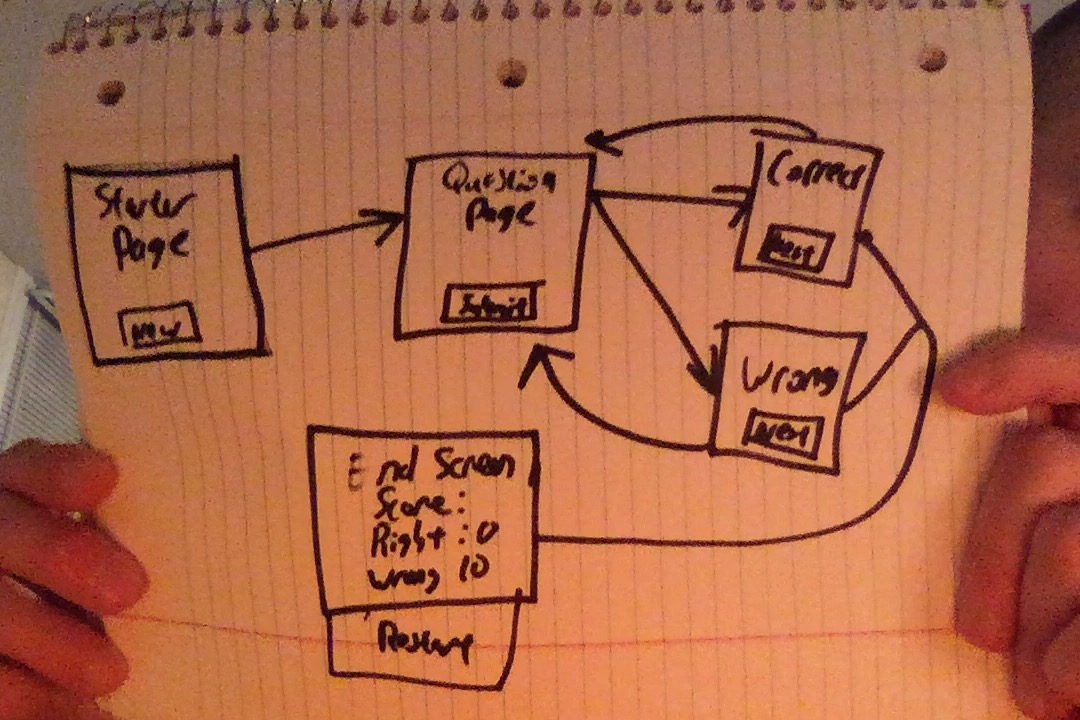 Starter
Page
New
Question
Page
Submit
Correct
Next
Wrong
Next
End Screen
Score:
Right : 0
Wrong 10
Restart